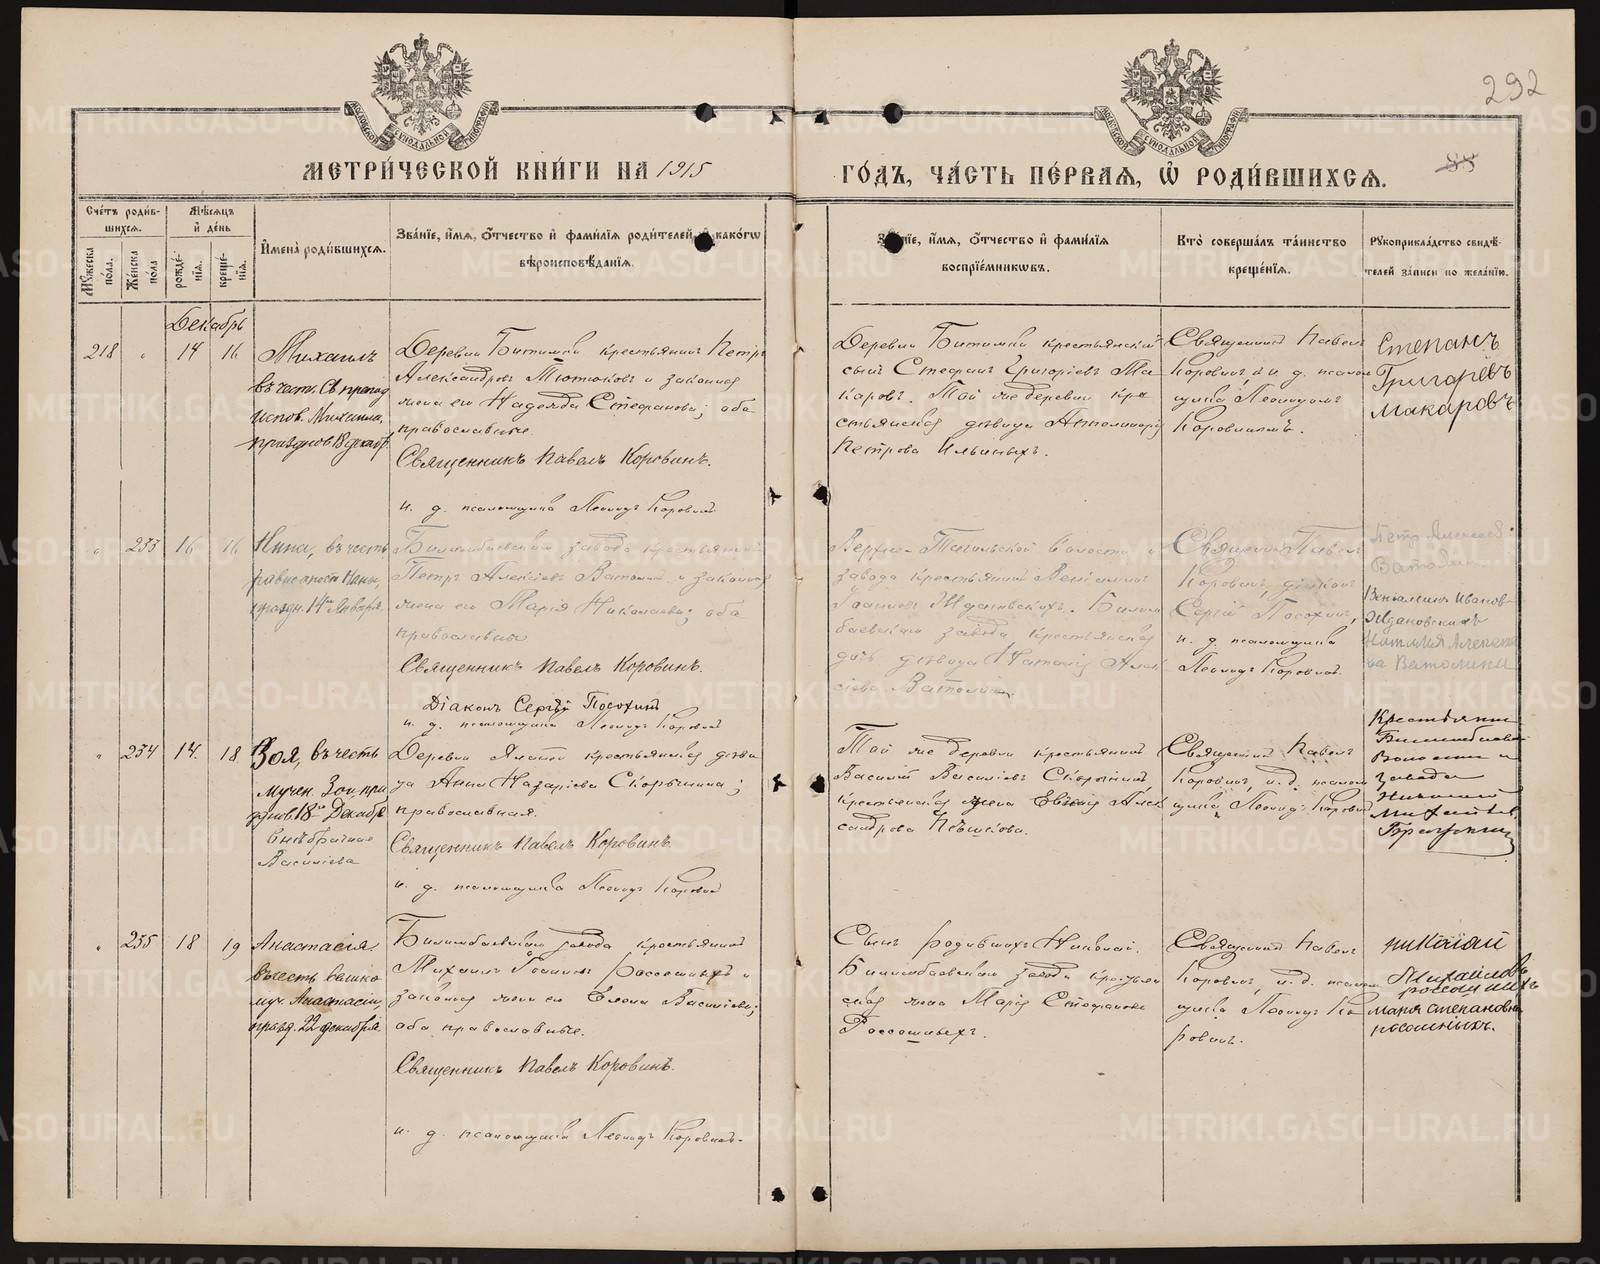 292
МОСКОВСКОЙ СУНОДАЛЬНОЙ ТИПОГРАФІИ
МОСКОВСКОЙ СУНОДАЛЬНОЙ ТИПОГРАФІИ
МЕТРИ́ЧЕСКОЙ КНИ́ГИ НА 1915
ГО́ДЪ, ЧА́СТЬ ПЕ́РВАЯ, Ѡ҆ РОДИ́ВШИХСЯ.
85
Сче́тъ роди́в-
шихся.
Мѣ́сяцъ
и҆ де́нь
Мꙋ́жеска пола.
Же́нска пола
рожде́-
нїя.
креще́-
нїя.
И҆мена̀ роди́вшихся.
Зва́нїе, и҆́мя, ѻ҆́тчество и҆ фами́лїя роди́телей, и҆ како́гѡ
вѣроисповѣ́данїя.
Зва́нїе, и҆́мя, ѻ҆́тчество и҆ фами́лїя
воспрїе́мникѡвъ.
Кто̀ соверша́лъ та́инство
креще́нїя.
Рꙋкоприкла́дство свидѣ́-
телей за́писи по жела́нїю.
Декабрь
218 " 14 16
Михаилъ
въ честь Св. препод.
испов. Михаила,
празднов. 18 декабр.
Деревни Битимки крестьянинъ Петръ
Александровъ Тютюковъ и законная
жена его Надежда Стефанова; оба
православные.
Священникъ Павелъ Коровинъ.
и. д. псаломщика Леонидъ Коровинъ
Деревни Битимки крестьянскій
сынъ Стефанъ Григоріевъ Ма-
каровъ. Той же деревни кре-
стьянская дѣвица Апполинарія
Петрова Ильиныхъ.
Священникъ Павелъ
Коровинъ, и. д. псалом-
щика Леонидъ
Коровинымъ.
Степанъ
Григоріевъ
Макаровъ
" 233 16 16
Нина, въ честь
равноапост. Нины,
праздн. 14го Января.
Билимбаевскаго завода крестьянинъ
Петръ Алексіевъ Ватолинъ и законная
жена его Марія Николаева; оба
православные
Священникъ Павелъ Коровинъ.
Діаконъ Сергѣй Посохинъ
и. д. псаломщика Леонидъ Коровинъ
Верхне-Тагильской волости и
завода крестьянинъ Веніаминъ
Іоанновъ Ждановскихъ. Билим-
баевскаго завода, крестьянская
дочь дѣвица Наталія Алек-
сіева Ватолина.
Священникъ Павелъ
Коровинъ, діаконъ
Сергій Посохинъ,
и. д. псаломщика
Леонидъ Коровинъ.
Петръ Алексеевъ
Ватолинъ
Веніаминъ Иванов-
Ждановскихъ
Наталия Алексее-
ва Ватолина
" 234 14. 18
Зоя, въ честь
мучен. Зои, пра-
здн. 18го Декабря
Внѣбрачная
Василіева
Деревни крестьянская дѣви-
ца Анна Назаріева Скорынина;
православная.
Священникъ Павелъ Коровинъ
и. д. псаломщика Леонидъ Коровинъ
Той же деревни крестьянинъ
Василій Василіевъ Скорынинъ
крестьянская жена Евгенія Алек-
сандрова
Священникъ Павелъ
Коровинъ, и. д. псалом-
щика Леонидъ Коровинъ
Крестьянин
Билимбаевской
Волости и
Завода
" 235 18 19
Анастасія.
въ честь велико-
муч. Анастасіи,
празд. 22 декабря
Билимбаевскаго завода крестьянинъ
Михаилъ Іоанновъ Россошныхъ и
законная жена его Елена Василіева;
оба православные.
Священникъ Павелъ Коровинъ.
и. д. псаломщика Леонидъ Коровинъ.
Сынъ родившихъ Николай.
Билимбаевскаго завода крестьян-
ская жена Марія Стефанова
Россошныхъ.
Священникъ Павелъ
Коровинъ, и. д. псалом-
щика Леонидъ Ко-
ровинъ.
николай
Михайловъ
россошныхъ
мария степановна
россошныхъ.
METRIKI.GASO-URAL.RU